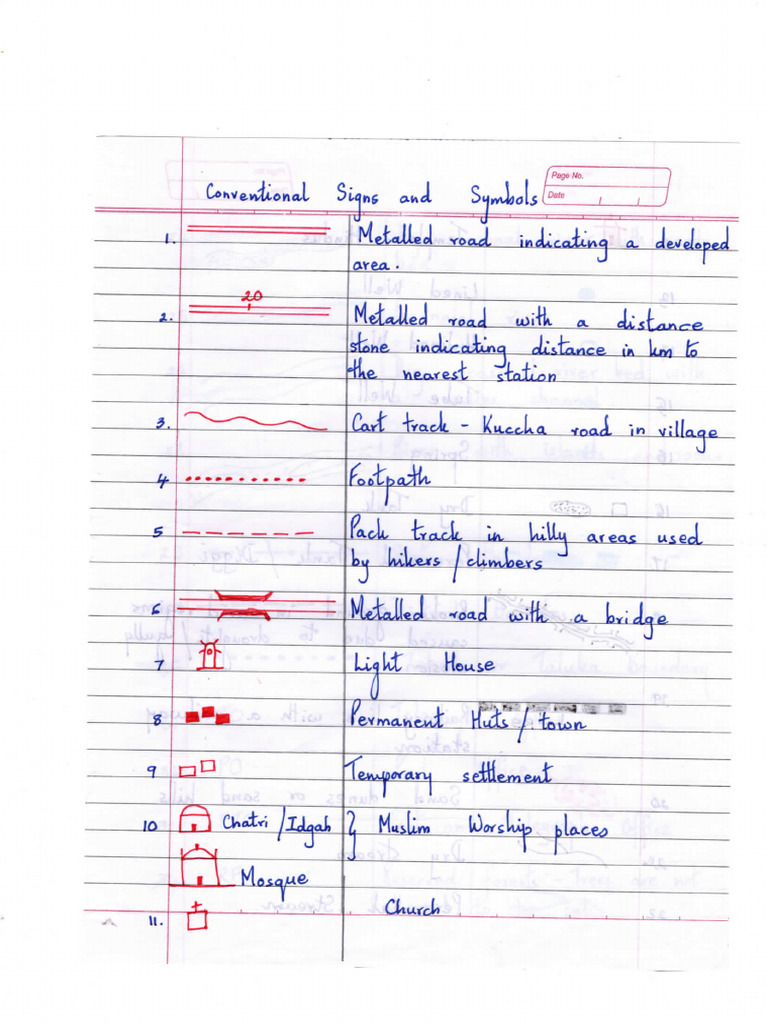 Page No.
Date
Conventional Signs and Symbols
1. Metalled road indicating a developed
area.
20
2. Metalled road with a distance
stone indicating distance in km to
the nearest station
3. Cart track - Kuccha road in village
4 Footpath
5 Pack track in hilly areas used
by hikers / climbers
6 Metalled road with a bridge
7 Light House
8 Permanent Huts / town
9 Temporary settlement
10 Chatri / Idgah } Muslim Worship places
Mosque
11. Church